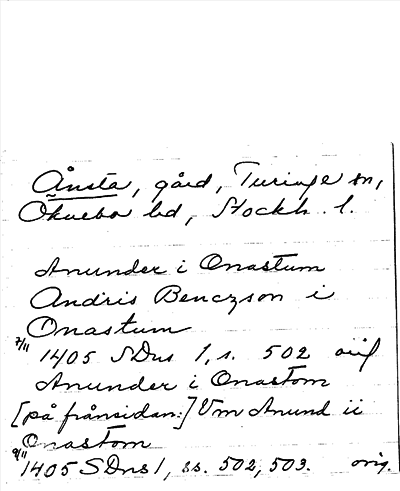 Ånsta, gård, Turinge sn,
Öknebo hd, Stockh. l.
Anunder i Onastum
Andris Benczson i
Onastum
7/11 1405 SDns 1, s. 502 orig
Anunder i Onastom
[på frånsidan:] Um Anund ii
Onastom
9/11 1405 SDns 1, ss. 502, 503. orig.